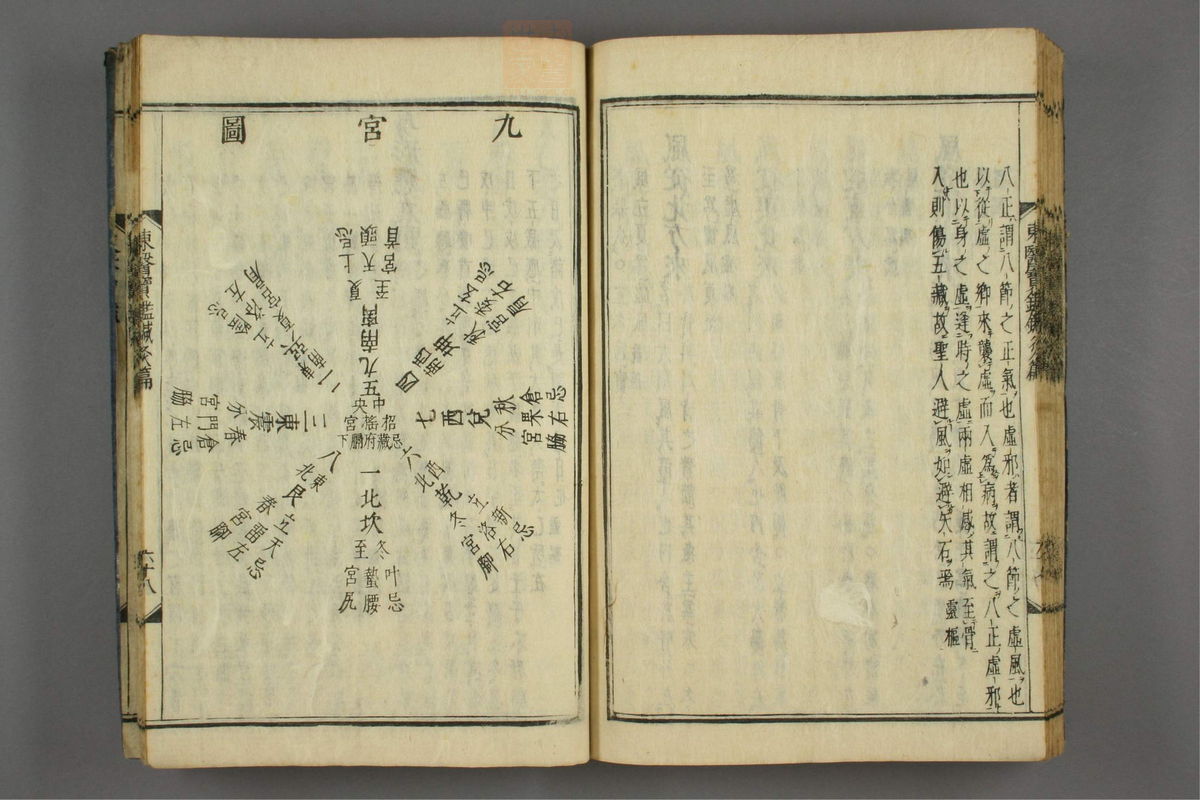 八正謂八節之正氣也虛邪者謂八節之虛風也
以從虛之鄉來襲虛而入爲病故謂之八正虛邪
也以身之虛逢時之虛兩虛相感其氣至骨
入則傷五藏故聖人避風如避矢石焉 靈樞
東醫寶鑑鍼灸篇
九宮圖
五九南
夏至
上天宮
忌頭首
四西南坤
立秋
玄
忌右
七西兌
秋分
倉果宮
忌右脇
六西北乾
立冬
新洛宮
忌右脚
一北坎
冬至
叶蟄宮
忌腰尻
八東北艮
立春
天留宮
忌左脚
三東震
春分
倉門宮
忌左脇
二東南巽
立夏
洛宮
忌
中央
招搖宮
忌藏府膈下
東醫寶鑑鍼灸篇
六十八